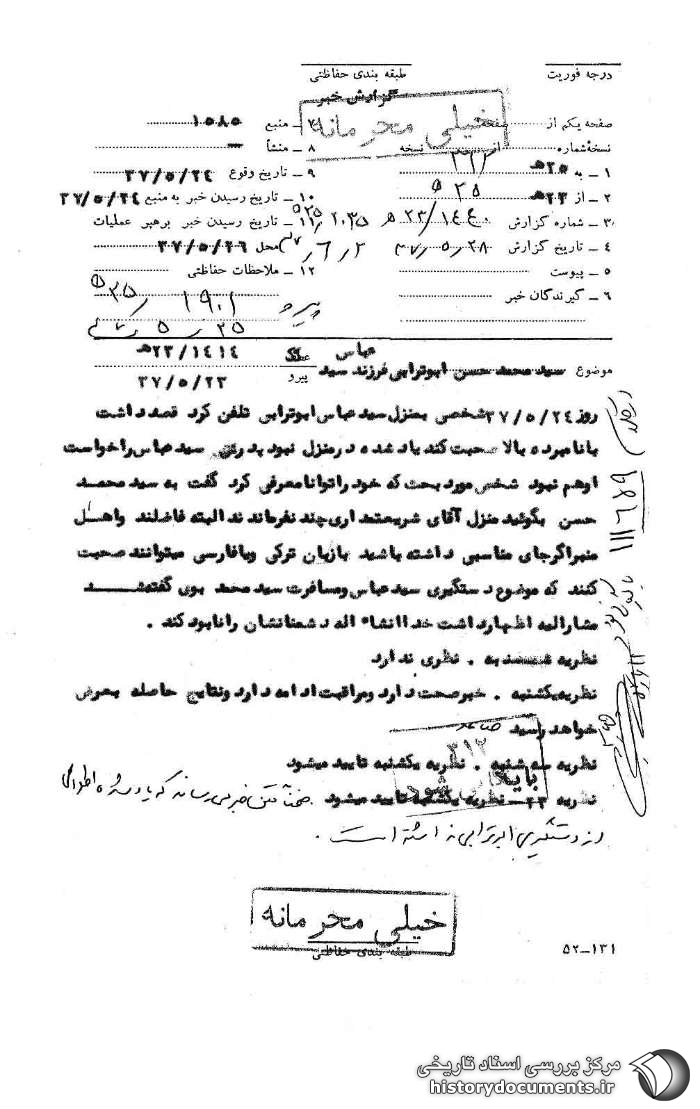 درجه فوریت
طبقه بندی حفاظتی
گزارش خبر
خیلی محرمانه
صفحه یکم از صفحه
نسخه شماره از نسخه
۱ – به ۲۵هـ ۳۱۲
۲ – از ۲۳هـ
۳ – شماره گزارش ۲۳/۱۴۴۰ هـ
۴ – تاریخ گزارش ۳۷/۵/۲۸
۵ – پیوست
۶ – گیرندگان خبر
۷ – منبع ۱۵۸۵
۸ – منشأ —
۹ – تاریخ وقوع ۳۷/۵/۲۴
۱۰ – تاریخ رسیدن خبر به منبع ۳۷/۵/۲۴
۱۱ – تاریخ رسیدن خبر برهبر عملیات
محل ۳۷/۵/۲۶
۱۲ – ملاحظات حفاظتی
پیرو ۱۹۰۱/ ۲۵هـ
۲۵/۵/۳۷
موضوع سید محمد حسن ابوترابی فرزند سید عباس
عطف ۲۳/۱۴۱۴هـ
پیرو ۳۷/۵/۲۳
روز ۳۷/۵/۲۴ شخصی بمنزل سید عباس ابوترابی تلفن کرد قصد داشت
با نامبرده بالا صحبت کند یاد شده در منزل نبود پدرش سید عباس را خواست
او هم نبود شخص مورد بحث که خود را توانا معرفی کرد گفت به سید محمد
حسن بگوئید منزل آقای شریعتمداری چند نفرماندند البته فاضلند و اهل
منبر اگر جای مناسبی داشته باشید بازبان ترکی ویا فارسی میتوانند صحبت
کنند که موضوع دستگیری سید عباس ومسافرت سید محمد بوی گفته شد
مشارالیه اظهار داشت خدا انشاء اله دشمنانشان را نابود کند .
نظریه شنبه . نظری ندارد
نظریه یکشنبه . خبر صحت دارد ومراقبت ادامه دارد ونتایج حاصله بعرض
خواهد رسید
نظریه سه شنبه . نظریه یکشنبه تایید میشود
۳۱۲
بایگانی شود
نظریه ۲۳ – نظریه یکشنبه تایید میشود . ضمناً متن خبر می‌رساند که یاد شده اطلاعی
از دستگیری ابوترابی نداشته است .
۱۱۱۶۸۹
خیلی محرمانه
طبقه بندی حفاظتی
۵۲–۱۳۱
مرکز بررسی اسناد تاریخی
historydocuments.ir